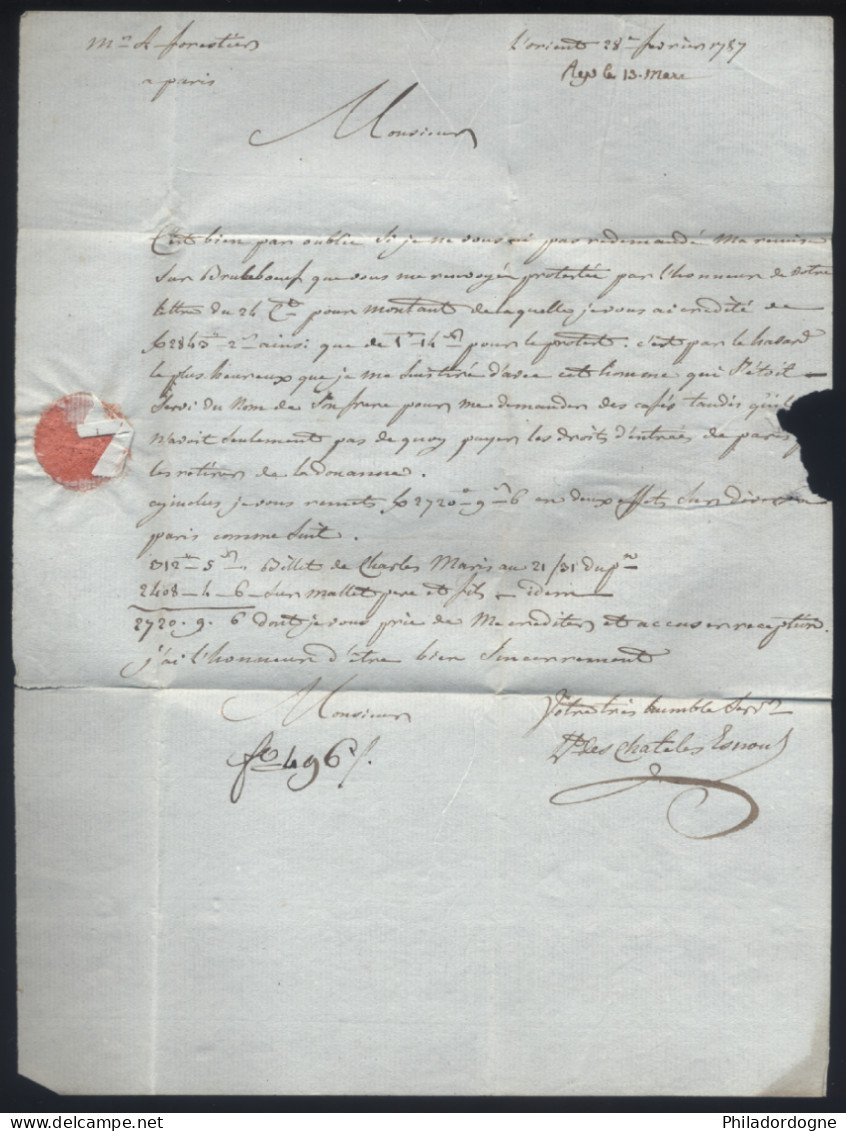 Mr A. forestier L'orient 28e fevrier 1787
a paris Rep le 13. Mars
Monsieur
C'est bien par oublie Si je ne vous ai pas redemandé Ma remise
Sur Brulebœuf que vous me renvoyéz protestée par l'honneur de votre
lettre du 24 pour montant de laquelle je vous ai credité de
2843 2 ainsi que de 1 14 pour le protest. c'est par le hasard
le plus heureux que je me suis tiré d'avec cet homme qui S'étoit
Servi du Nom de Son frere pour me demander des cafés tandis qu'il
N'avoit Seulement pas de quoy payer les droits d'entrées de paris
les retirer de la douanne.
cyinclus je vous remets 2720 9 6 en deux effets Sur divers
paris comme Suit.
312 5 Billet de Charles Maris au 21/31 du pr
2408 - 4 - 6 - Sur mallet pere et fils - idem
2720. 9. 6 dont je vous prie de Me crediter et accuser reception.
j'ai l'honneur d'être bien Sincerrement
Monsieur Votre tres humble Servr
fo 496 Des Chateles Esnoul
Philadordogne